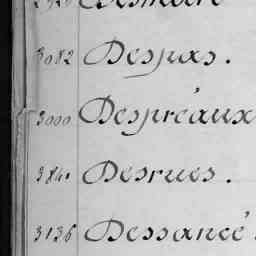 3082 Despas.
3000 Despréaux
3841 Desrues.
3136 Dessancé.